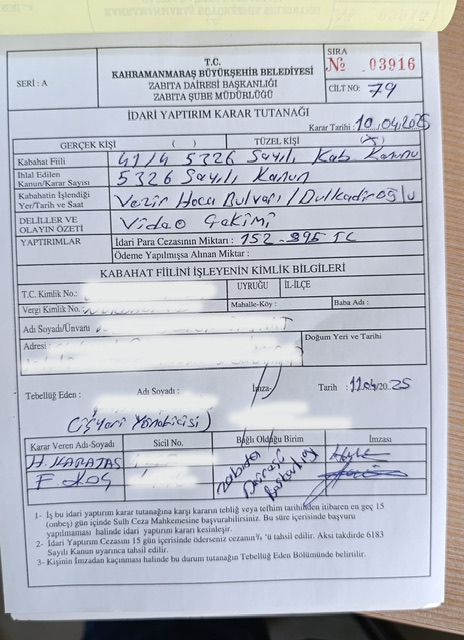 T.C.
KAHRAMANMARAŞ BÜYÜKŞEHİR BELEDİYESİ
ZABITA DAİRESİ BAŞKANLIĞI
ZABITA ŞUBE MÜDÜRLÜĞÜ
SERİ : A
SIRA
№ 03916
CİLT NO: 79
İDARİ YAPTIRIM KARAR TUTANAĞI
Karar Tarihi : 10.04.2025
GERÇEK KİŞİ ( ) TÜZEL KİŞİ (X)
Kabahat Fiili 41/4 5326 Sayılı Kab. Kanunu
İhlal Edilen Kanun/Karar Sayısı 5326 Sayılı Kanun
Kabahatin İşlendiği Yer/Tarih ve Saat Vezir Hoca Bulvarı / Dulkadiroğlu
DELİLLER VE OLAYIN ÖZETİ Video Çekimi
YAPTIRIMLAR İdari Para Cezasının Miktarı : 152.895 TC
Ödeme Yapılmışsa Alınan Miktar :
KABAHAT FİİLİNİ İŞLEYENİN KİMLİK BİLGİLERİ
T.C. Kimlik No.: UYRUĞU İL-İLÇE
Vergi Kimlik No.: Mahalle-Köy : Baba Adı :
Adı Soyadı/Ünvanı
Adresi : Doğum Yeri ve Tarihi
Tebellüğ Eden : Adı Soyadı : İmza- Tarih : 11.04/20.25
(İşyeri Yöneticisi)
Karar Veren Adı-Soyadı Sicil No. Bağlı Olduğu Birim İmzası
H. KARATAŞ Zabıta Dairesi Başkanlığı
F. KOÇ
1- İş bu idari yaptırım karar tutanağına karşı kararın tebliğ veya tefhim tarihinden itibaren en geç 15
(onbeş) gün içinde Sulh Ceza Mahkemesine başvurabilirsiniz. Bu süre içerisinde başvuru
yapılmaması halinde idari yaptırım kararı kesinleşir.
2- İdari Yaptırım Cezasını 15 gün içerisinde öderseniz cezanın ¼ 'ü tahsil edilir. Aksi takdirde 6183
Sayılı Kanun uyarınca tahsil edilir.
3- Kişinin İmzadan kaçınması halinde bu durum tutanağın Tebellüğ Eden Bölümünde belirtilir.